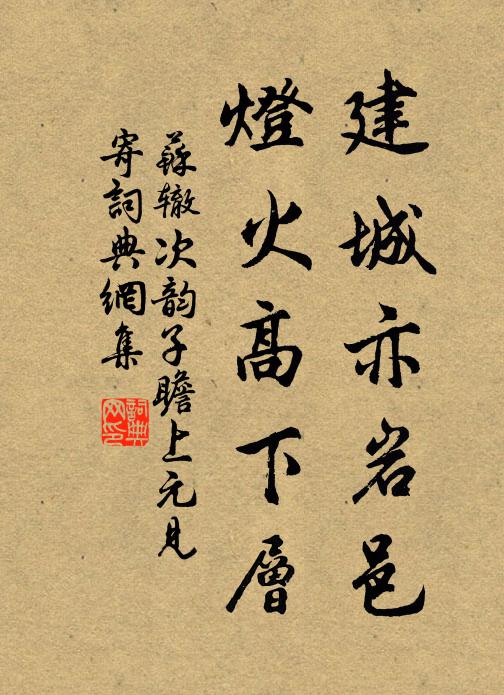 建城亦岩邑
燈火高下層
蘇辙次韵子瞻上元見
寄詞典網集
詞典网印